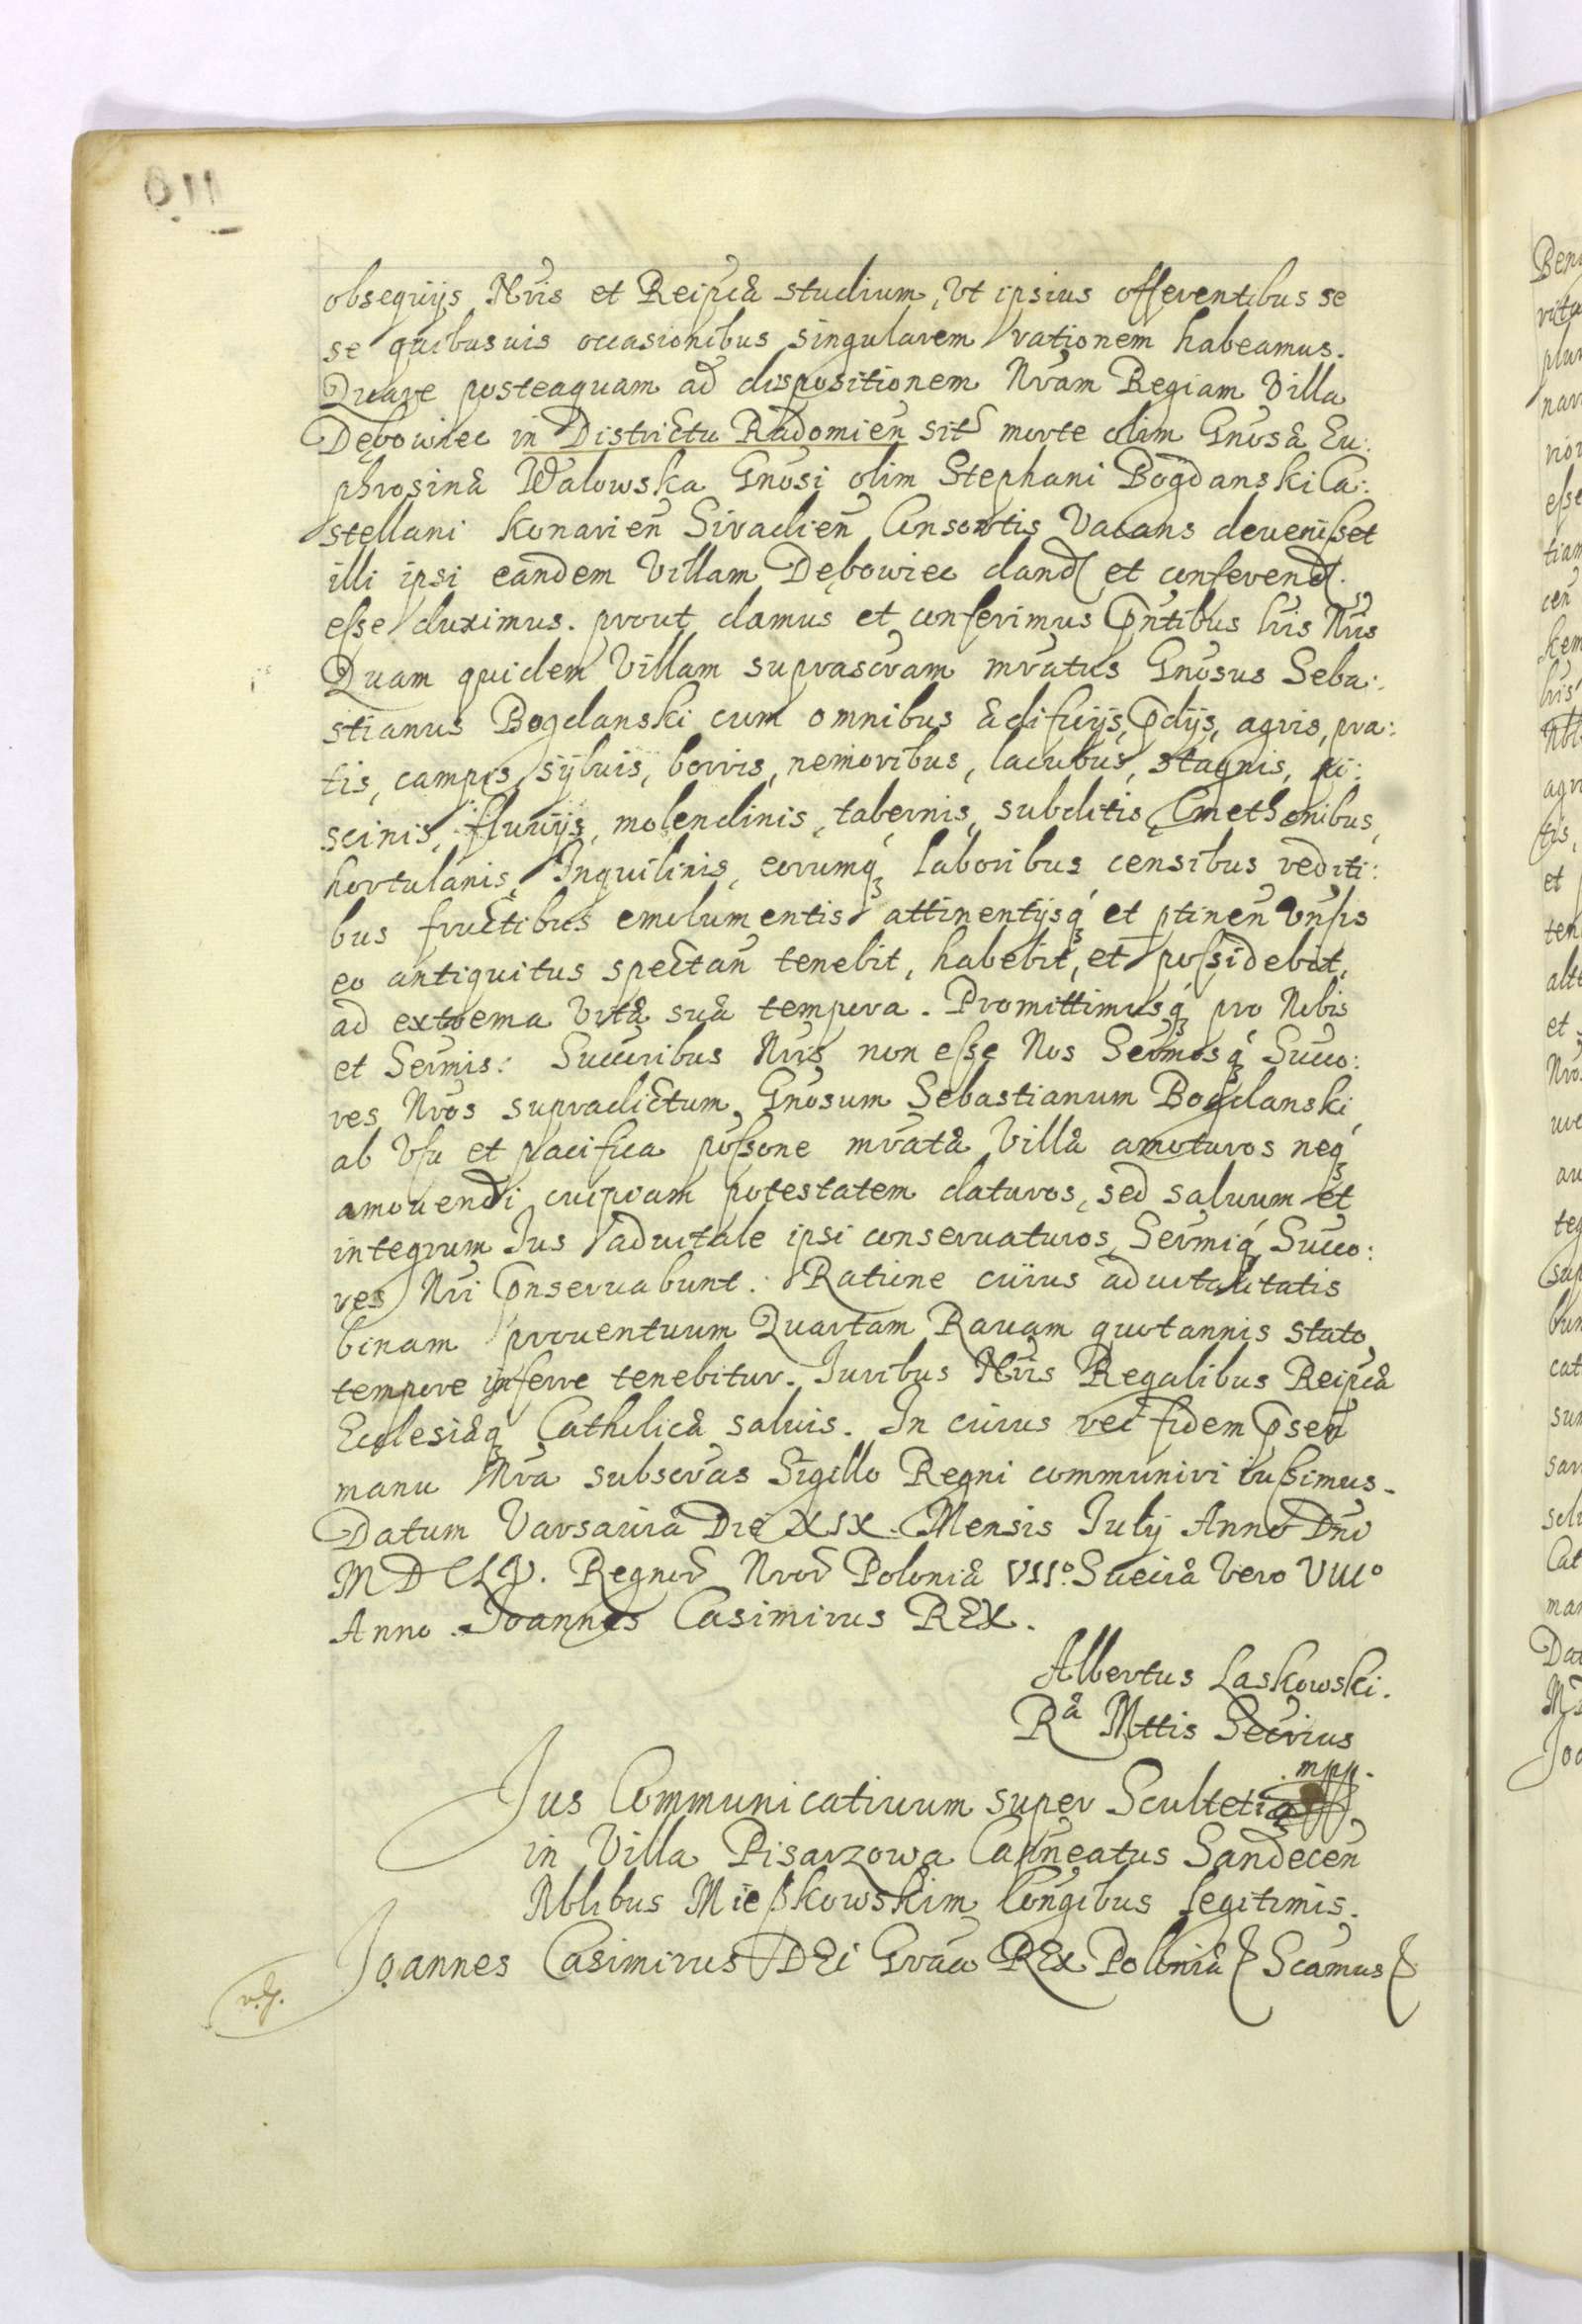 obsequijs Nris et Reipcæ studium, Vt ipsius offerentibus se
se quibusuis occasionibus singularem rationem habeamus.
Quare posteaquam ad dispositionem Nram Regiam Villa
Dębowiec in Districtu Radomien sit morte olim Gnosæ Eu:
phrosinæ Walowska Gnosi olim Stephani Bogdanski Ca:
stellani Konarien Siradien Consortis Vacans deuenisset
illi ipsi eandem Villam Dębowiec dand et conferend.
esse duximus. prout damus et conferimus Pntibus lris Nris
Quam quidem Villam suprascram mratus Gnosus Seba:
stianus Bogdanski cum omnibus ædificijs, Pdijs, agris, pra:
tis, campis, syluis, borris, nemoribus, lacubus, stagnis, pi:
scinis, fluuijs, molendinis, tabernis, subditis, Cmethonibus,
hortulanis, Inquilinis, eorumq laboribus censibus rediti:
bus fructibus emolumentis attinentijsq et ptinen Vnsis
eo antiquitus spectan tenebit, habebit, et possidebit,
ad extrema Vitæ suæ tempora. Promittimusq pro Nobis
et Sermis: Succoribus Nris non esse Nos Sermosq Succo:
res Nros supradictum Gnosum Sebastianum Bogdanski
ab Vsu et pacifica possone mratæ Villæ amoturos neq
amouendi cuipiam potestatem daturos, sed saluum et
integrum Ius aduitale ipsi conseruaturos, Sermiq Succo:
res Nri Conseruabunt. Ratione cuius aduitalitatis
binam prouentuum Quartam Rauam quotannis stato
tempore inferre tenebitur. Iuribus Nris Regalibus Reipcæ
Ecclesiæq Catholicæ saluis. In cuius rei fidem Psen
manu Nra subscras Sigillo Regni communiri iussimus.
Datum Varsauiæ Die XIX. Mensis Iulij Anno Dni
MDCLV. Regnor Nror Poloniæ VII.o Sueciæ Vero VIII.o
Anno. Joannes Casimirus REX.
Albertus Laskowski.
Ræ Mttis Secrius
mpp.
Jus Communicatiuum super Scultetia
in Villa Pisarzowa Captneatus Sandecen
Nblibus Mießkowskim Congibus legitimis.
Joannes Casimirus DEi Gratia REx Poloniæ & Scamus &